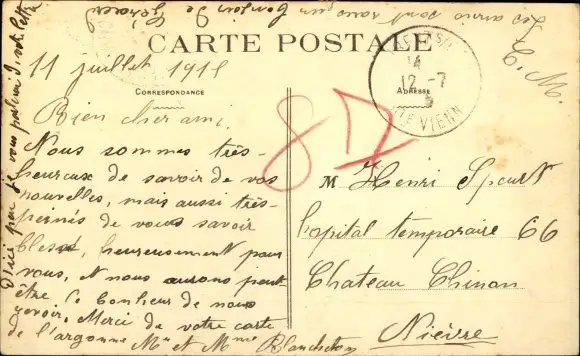 Les amis sont sans un bonjour de Gérard
CARTE POSTALE
F. M.
11 juillet 1915
CORRESPONDANCE
ADRESSE
14
12 -7
15
HTE VIENNE
8
Bien cher ami,
Nous sommes très-
heureux de savoir de vos
nouvelles, mais aussi très-
peinés de vous savoir
blessé, heureusement pour
vous, et nous aurons peut
être, le bonheur de nous
revoir. Merci de votre carte
de l'argonne Mr et Mme Blanchdon
M Henri Spcurt
hopital temporaire 66
Chateau Chinon
Nièvre
D'ici peu je vous